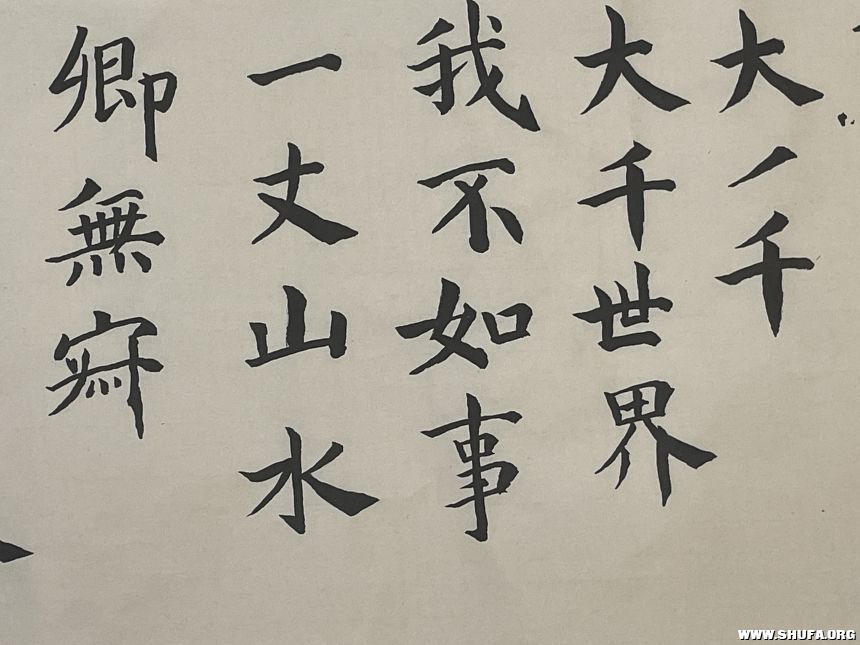 大丿千
大千世界
我不如事
一丈山水
卿無
WWW.SHUFA.ORG